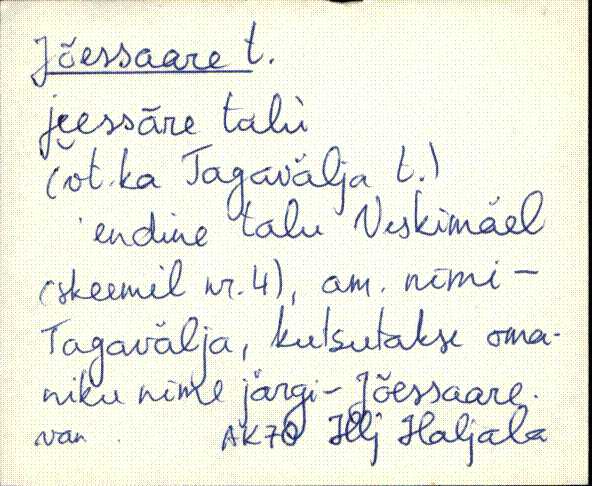 Jõessaare t.
jeessāre talu
(vt. ka Tagavälja t.)
endine talu Veskimäel
(skeemil nr. 4), am. nimi -
Tagavälja, kutsutakse oma-
niku nime järgi - Jõessaare.
van. AK70 Hlj Haljala